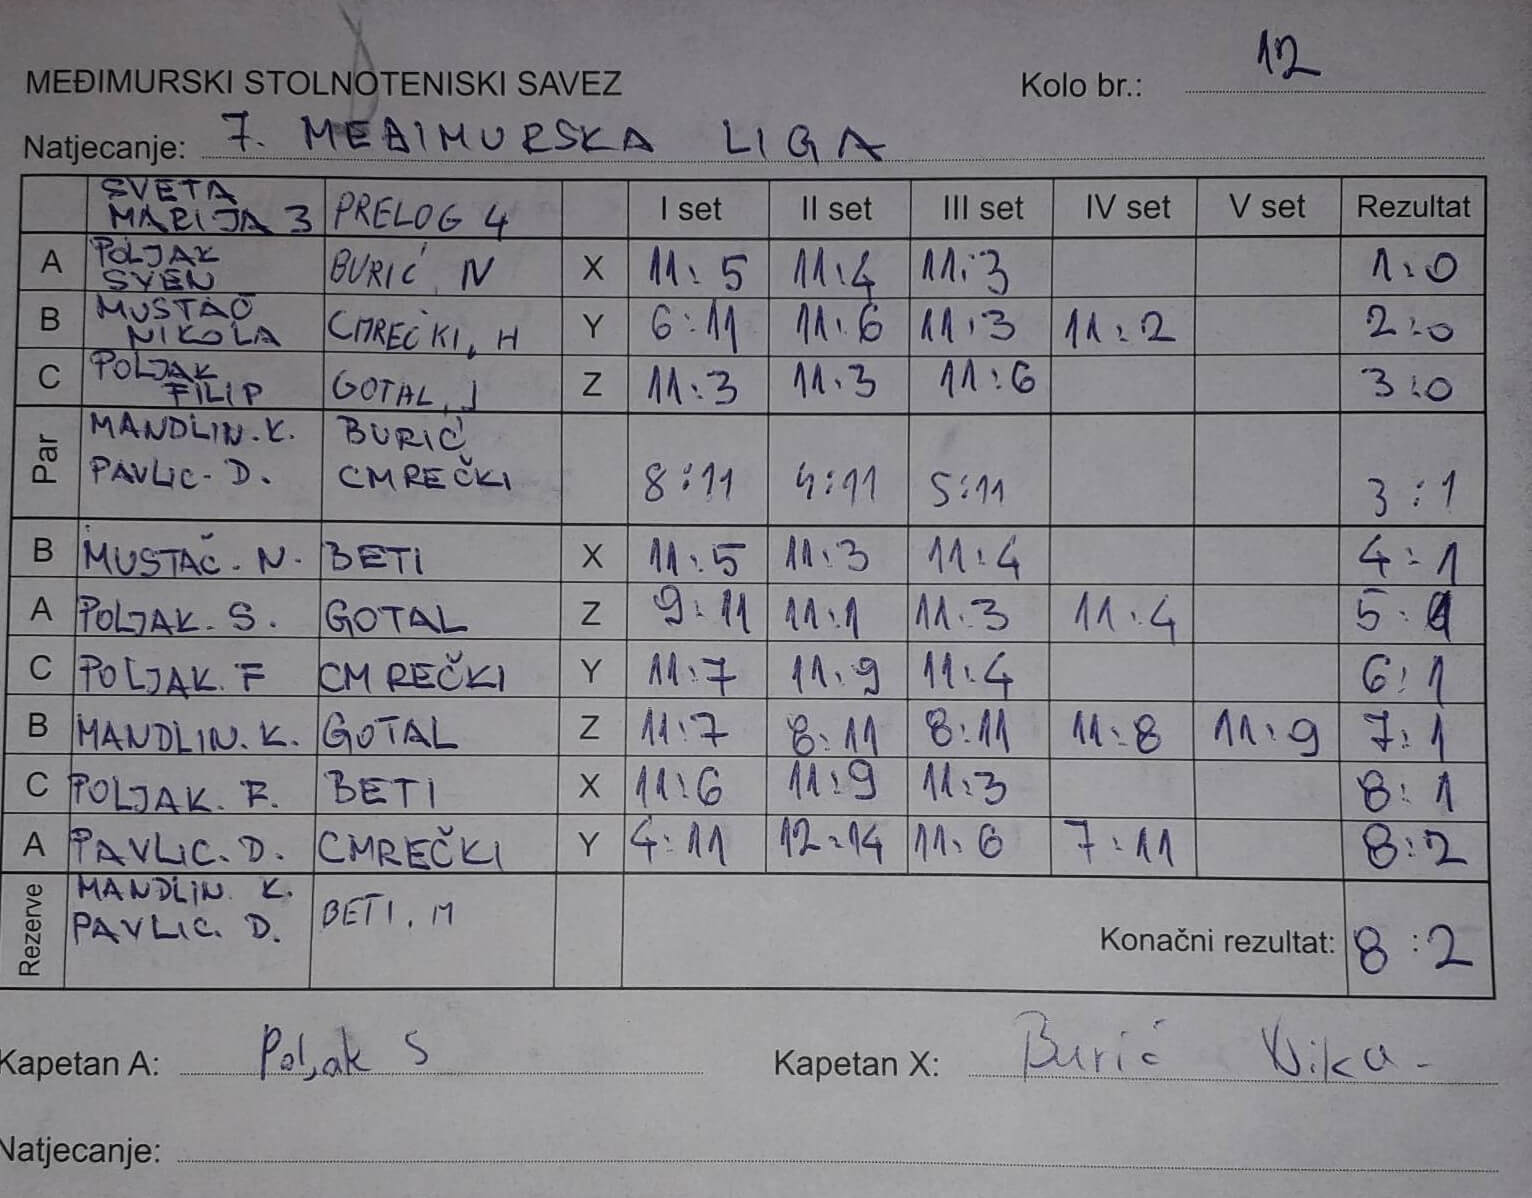 MEĐIMURSKI STOLNOTENISKI SAVEZ Kolo br.: 12
Natjecanje: 7. MEĐIMURSKA LIGA
SVETA MARIJA 3 PRELOG 4 I set II set III set IV set V set Rezultat
A POLJAK SVEN BURIĆ N X 11:5 11:4 11:3 1:0
B MUSTAČ NIKOLA CMREČKI, H Y 6:11 11:6 11:3 11:2 2:0
C POLJAK FILIP GOTAL, J Z 11:3 11:3 11:6 3:0
Par MANDLIN. K. BURIĆ
PAVLIC. D. CMREČKI 8:11 4:11 5:11 3:1
B MUSTAČ. N. BETI X 11:5 11:3 11:4 4:1
A POLJAK. S. GOTAL Z 9:11 11:1 11:3 11:4 5:1
C POLJAK. F CMREČKI Y 11:7 11:9 11:4 6:1
B MANDLIN. K. GOTAL Z 11:7 8:11 8:11 11:8 11:9 7:1
C POLJAK. F. BETI X 11:6 11:9 11:3 8:1
A PAVLIC. D. CMREČKI Y 4:11 12:14 11:6 7:11 8:2
Rezerve MANDLIN. K. BETI. M
PAVLIC. D. Konačni rezultat: 8:2
Kapetan A: Poljak S Kapetan X: Burić Nika
Natjecanje: